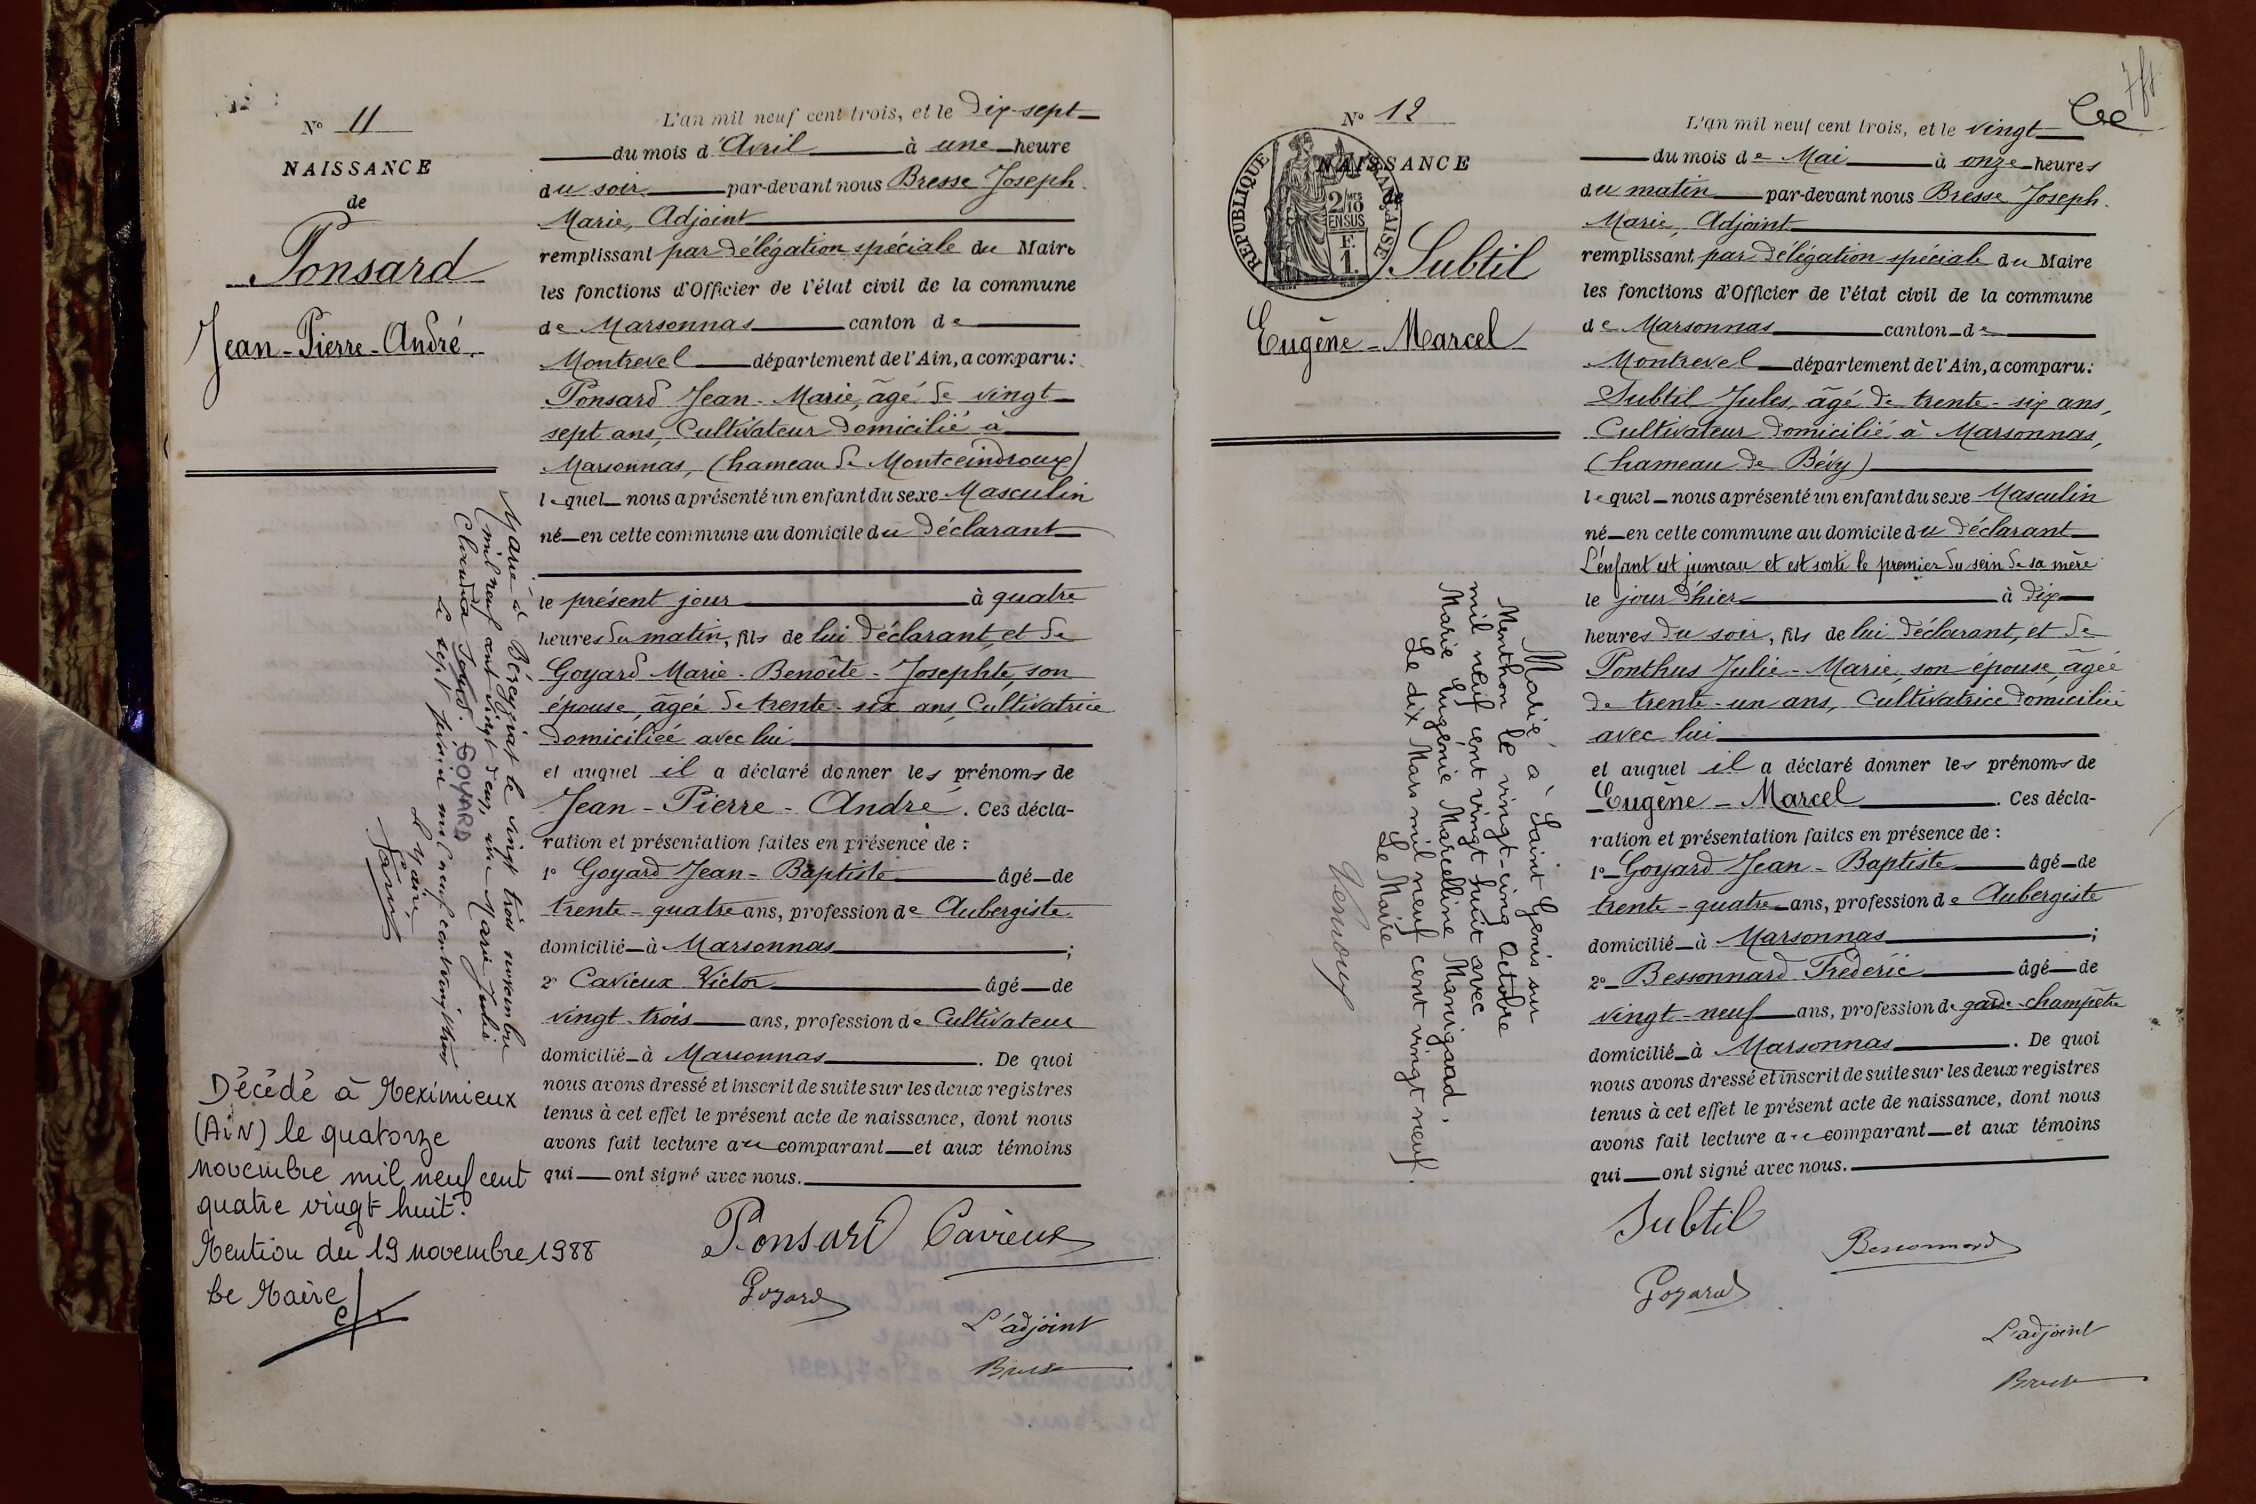 N° 11
NAISSANCE
de
Ponsard
Jean-Pierre-André
Marié à Béréyziat le vingt trois novembre
mil neuf cent vingt deux, avec Marie Julie
Claudia GOYARD
Le sept février mil neuf cent vingt trois
Le Maire
Décédé à Meximieux
(AIN) le quatorze
novembre mil neuf cent
quatre vingt huit.
Mention du 19 novembre 1988
Le Maire
L'an mil neuf cent trois, et le Dix-sept
du mois d'Avril à une heure
du soir par-devant nous Bresse Joseph-
Marie, Adjoint
remplissant par délégation spéciale du Maire
les fonctions d'Officier de l'état civil de la commune
de Marsonnas canton de
Montrevel département de l'Ain, a comparu:
Ponsard Jean-Marie, âgé de vingt
sept ans, Cultivateur domicilié à
Marsonnas, (hameau de Montceindroux)
lequel nous a présenté un enfant du sexe Masculin
né en cette commune au domicile du déclarant
le présent jour à quatre
heures du matin, fils de lui déclarant, et de
Goyard Marie-Benoîte-Josephte, son
épouse, âgée de trente-six ans, Cultivatrice
domiciliée avec lui
et auquel il a déclaré donner les prénoms de
Jean-Pierre-André. Ces décla-
ration et présentation faites en présence de :
1° Goyard Jean-Baptiste âgé de
trente-quatre ans, profession de Aubergiste
domicilié à Marsonnas ;
2° Cavieux Victor âgé de
vingt-trois ans, profession de Cultivateur
domicilié à Marsonnas. De quoi
nous avons dressé et inscrit de suite sur les deux registres
tenus à cet effet le présent acte de naissance, dont nous
avons fait lecture au comparant et aux témoins
qui ont signé avec nous.
Ponsard Cavieux
Goyard
L'adjoint
Bresse
N° 12
RÉPUBLIQUE FRANÇAISE
2/10 EN SUS
F. 1.
NAISSANCE
de
Subtil
Eugène-Marcel
Marié à Saint Genis sur
Menthon le vingt-cinq Octobre
mil neuf cent vingt huit avec
Marie Eugénie Marcelline Manigand.
Le dix Mars mil neuf cent vingt neuf.
Le Maire
L'an mil neuf cent trois, et le vingt
du mois de Mai à onze heures
du matin par-devant nous Bresse Joseph-
Marie, Adjoint
remplissant par délégation spéciale du Maire
les fonctions d'Officier de l'état civil de la commune
de Marsonnas canton de
Montrevel département de l'Ain, a comparu:
Subtil Jules, âgé de trente-six ans,
Cultivateur domicilié à Marsonnas,
(hameau de Bévy)
lequel nous a présenté un enfant du sexe Masculin
né en cette commune au domicile du déclarant
L'enfant est jumeau et est sorti le premier du sein de sa mère
le jour d'hier à dix
heures du soir, fils de lui déclarant, et de
Ponthus Julie-Marie, son épouse, âgée
de trente-un ans, Cultivatrice domiciliée
avec lui
et auquel il a déclaré donner les prénoms de
Eugène-Marcel. Ces décla-
ration et présentation faites en présence de :
1° Goyard Jean-Baptiste âgé de
trente-quatre ans, profession de Aubergiste
domicilié à Marsonnas ;
2° Bessonnard Frédéric âgé de
vingt-neuf ans, profession de garde-champêtre
domicilié à Marsonnas. De quoi
nous avons dressé et inscrit de suite sur les deux registres
tenus à cet effet le présent acte de naissance, dont nous
avons fait lecture au comparant et aux témoins
qui ont signé avec nous.
Subtil
Bessonnard
Goyard
L'adjoint
Bresse